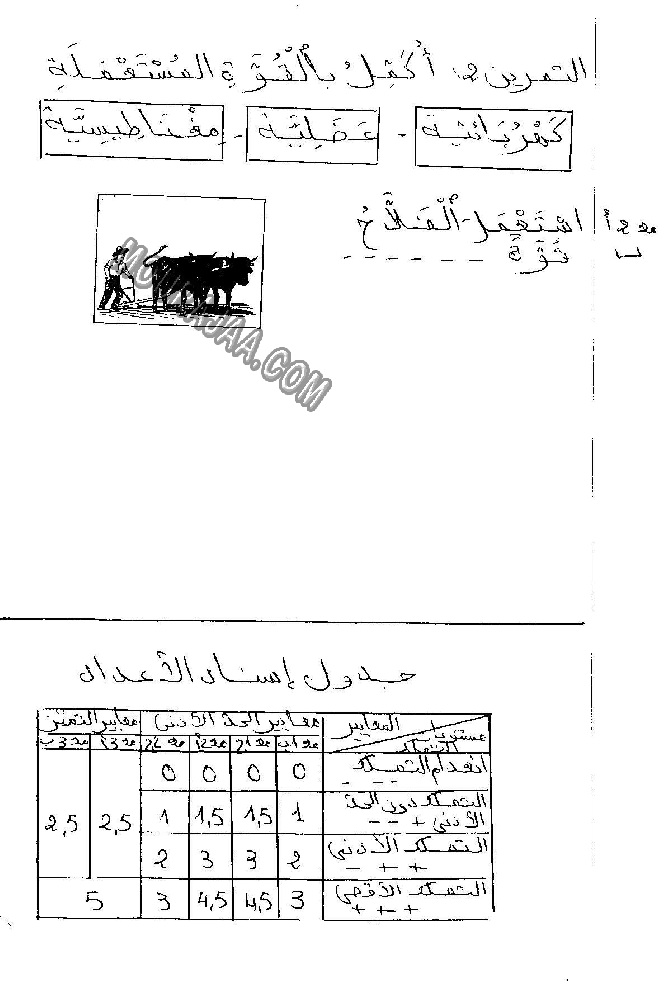 التمرين 2: أُكْمِلُ بِالْقُوَّةِ المُسْتَعْمَلَةِ
كَهْرُبَائِيَّة - عَضَلِيَّة - مِغْنَاطِيسِيَّة
مع 2 أ اسْتَعْمَلَ الْفَلاَّحُ
ب قُوَّةً ------
MOURAJAA.COM
جدول إسناد الأعداد
المعايير معايير الحد الأدنى معايير التميز
مستويات التملك مع 1ب مع 1ج مع 2أ مع 2ج مع 3أ مع 3ب
انعدام التملك - - - 0 0 0 0
التملك دون الحد الأدنى + - - 1 1,5 1,5 1 2,5 2,5
التملك الأدنى + + - 2 3 3 2
التملك الأقصى + + + 3 4,5 4,5 3 5